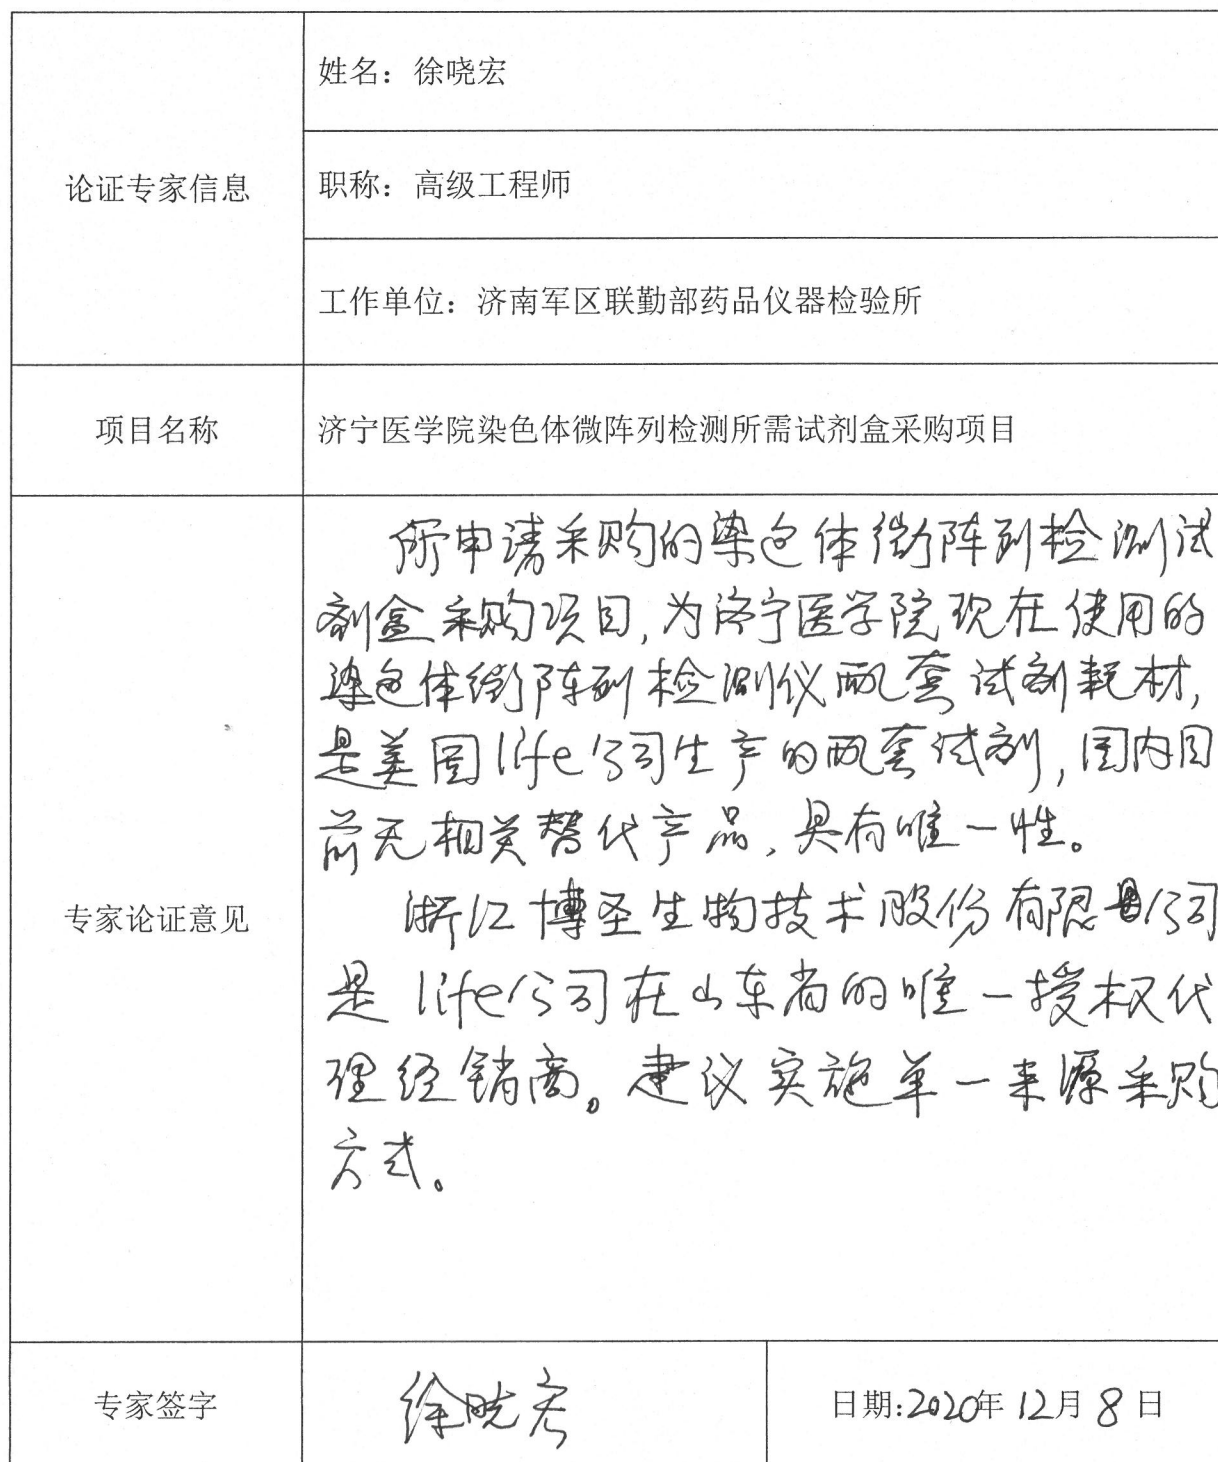 姓名：徐晓宏
论证专家信息
职称：高级工程师
工作单位：济南军区联勤部药品仪器检验所
项目名称
济宁医学院染色体微阵列检测所需试剂盒采购项目
所申请采购的染色体微阵列检测试
剂盒采购项目，为济宁医学院现在使用的
染色体微阵列检测仪配套试剂耗材，
是美国life公司生产的配套试剂，国内目
前无相关替代产品，具有唯一性。
专家论证意见
浙江博圣生物技术股份有限公司
是life公司在山东省的唯一授权代
理经销商。建议实施单一来源采购
方式。
专家签字
徐晓宏
日期:2020年12月8日